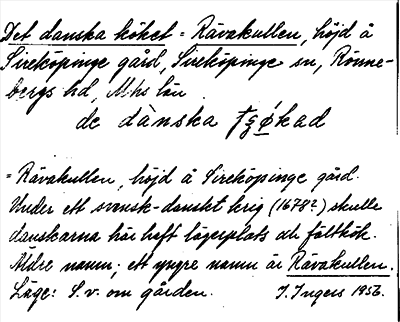 Det danska köket = Rävakullen, höjd å
Sireköpinge gård, Sireköpinge sn, Rönne-
bergs hd, Mhs län
de dànska tʒøkad
= Rävakullen, höjd å Sireköpinge gård.
Under ett svensk-danskt krig (1678?) skulle
danskarna här haft lägerplats och fältkök.
Äldre namn; ett yngre namn är Rävakullen.
Läge: S.v. om gården. I. Ingers 1956.